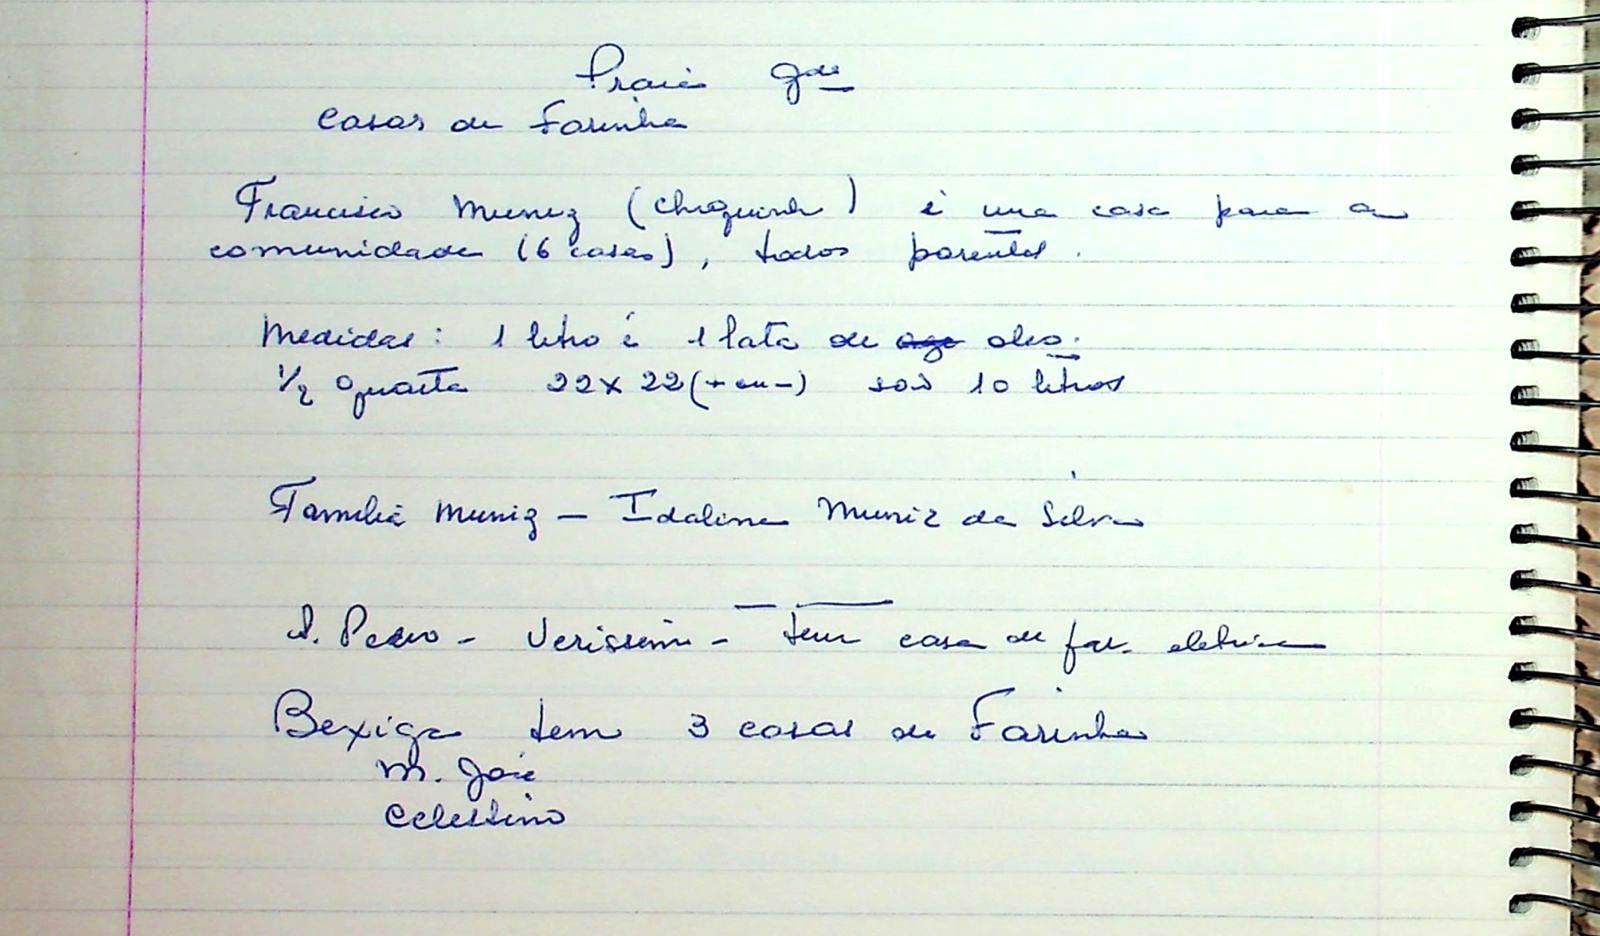 Praia gde
Casas de Farinha
Francisco Muniz (Chiquinho) é uma casa para a
comunidade (6 casas), todos parentes.
Medidas: 1 litro é 1 lata de oleo.
1/2 Quarta 22 x 22 (+ ou -) são 10 litros
Familia Muniz - Idalina Muniz da Silva
S. Pedro - Verissimo - tem casa de far. eletrica
Bexiga tem 3 casas de Farinha
M. José
Celestino